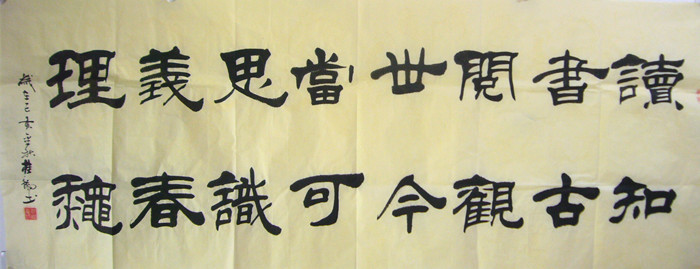 讀書閱世當思義理
知古觀今可識春龝
歲在己亥